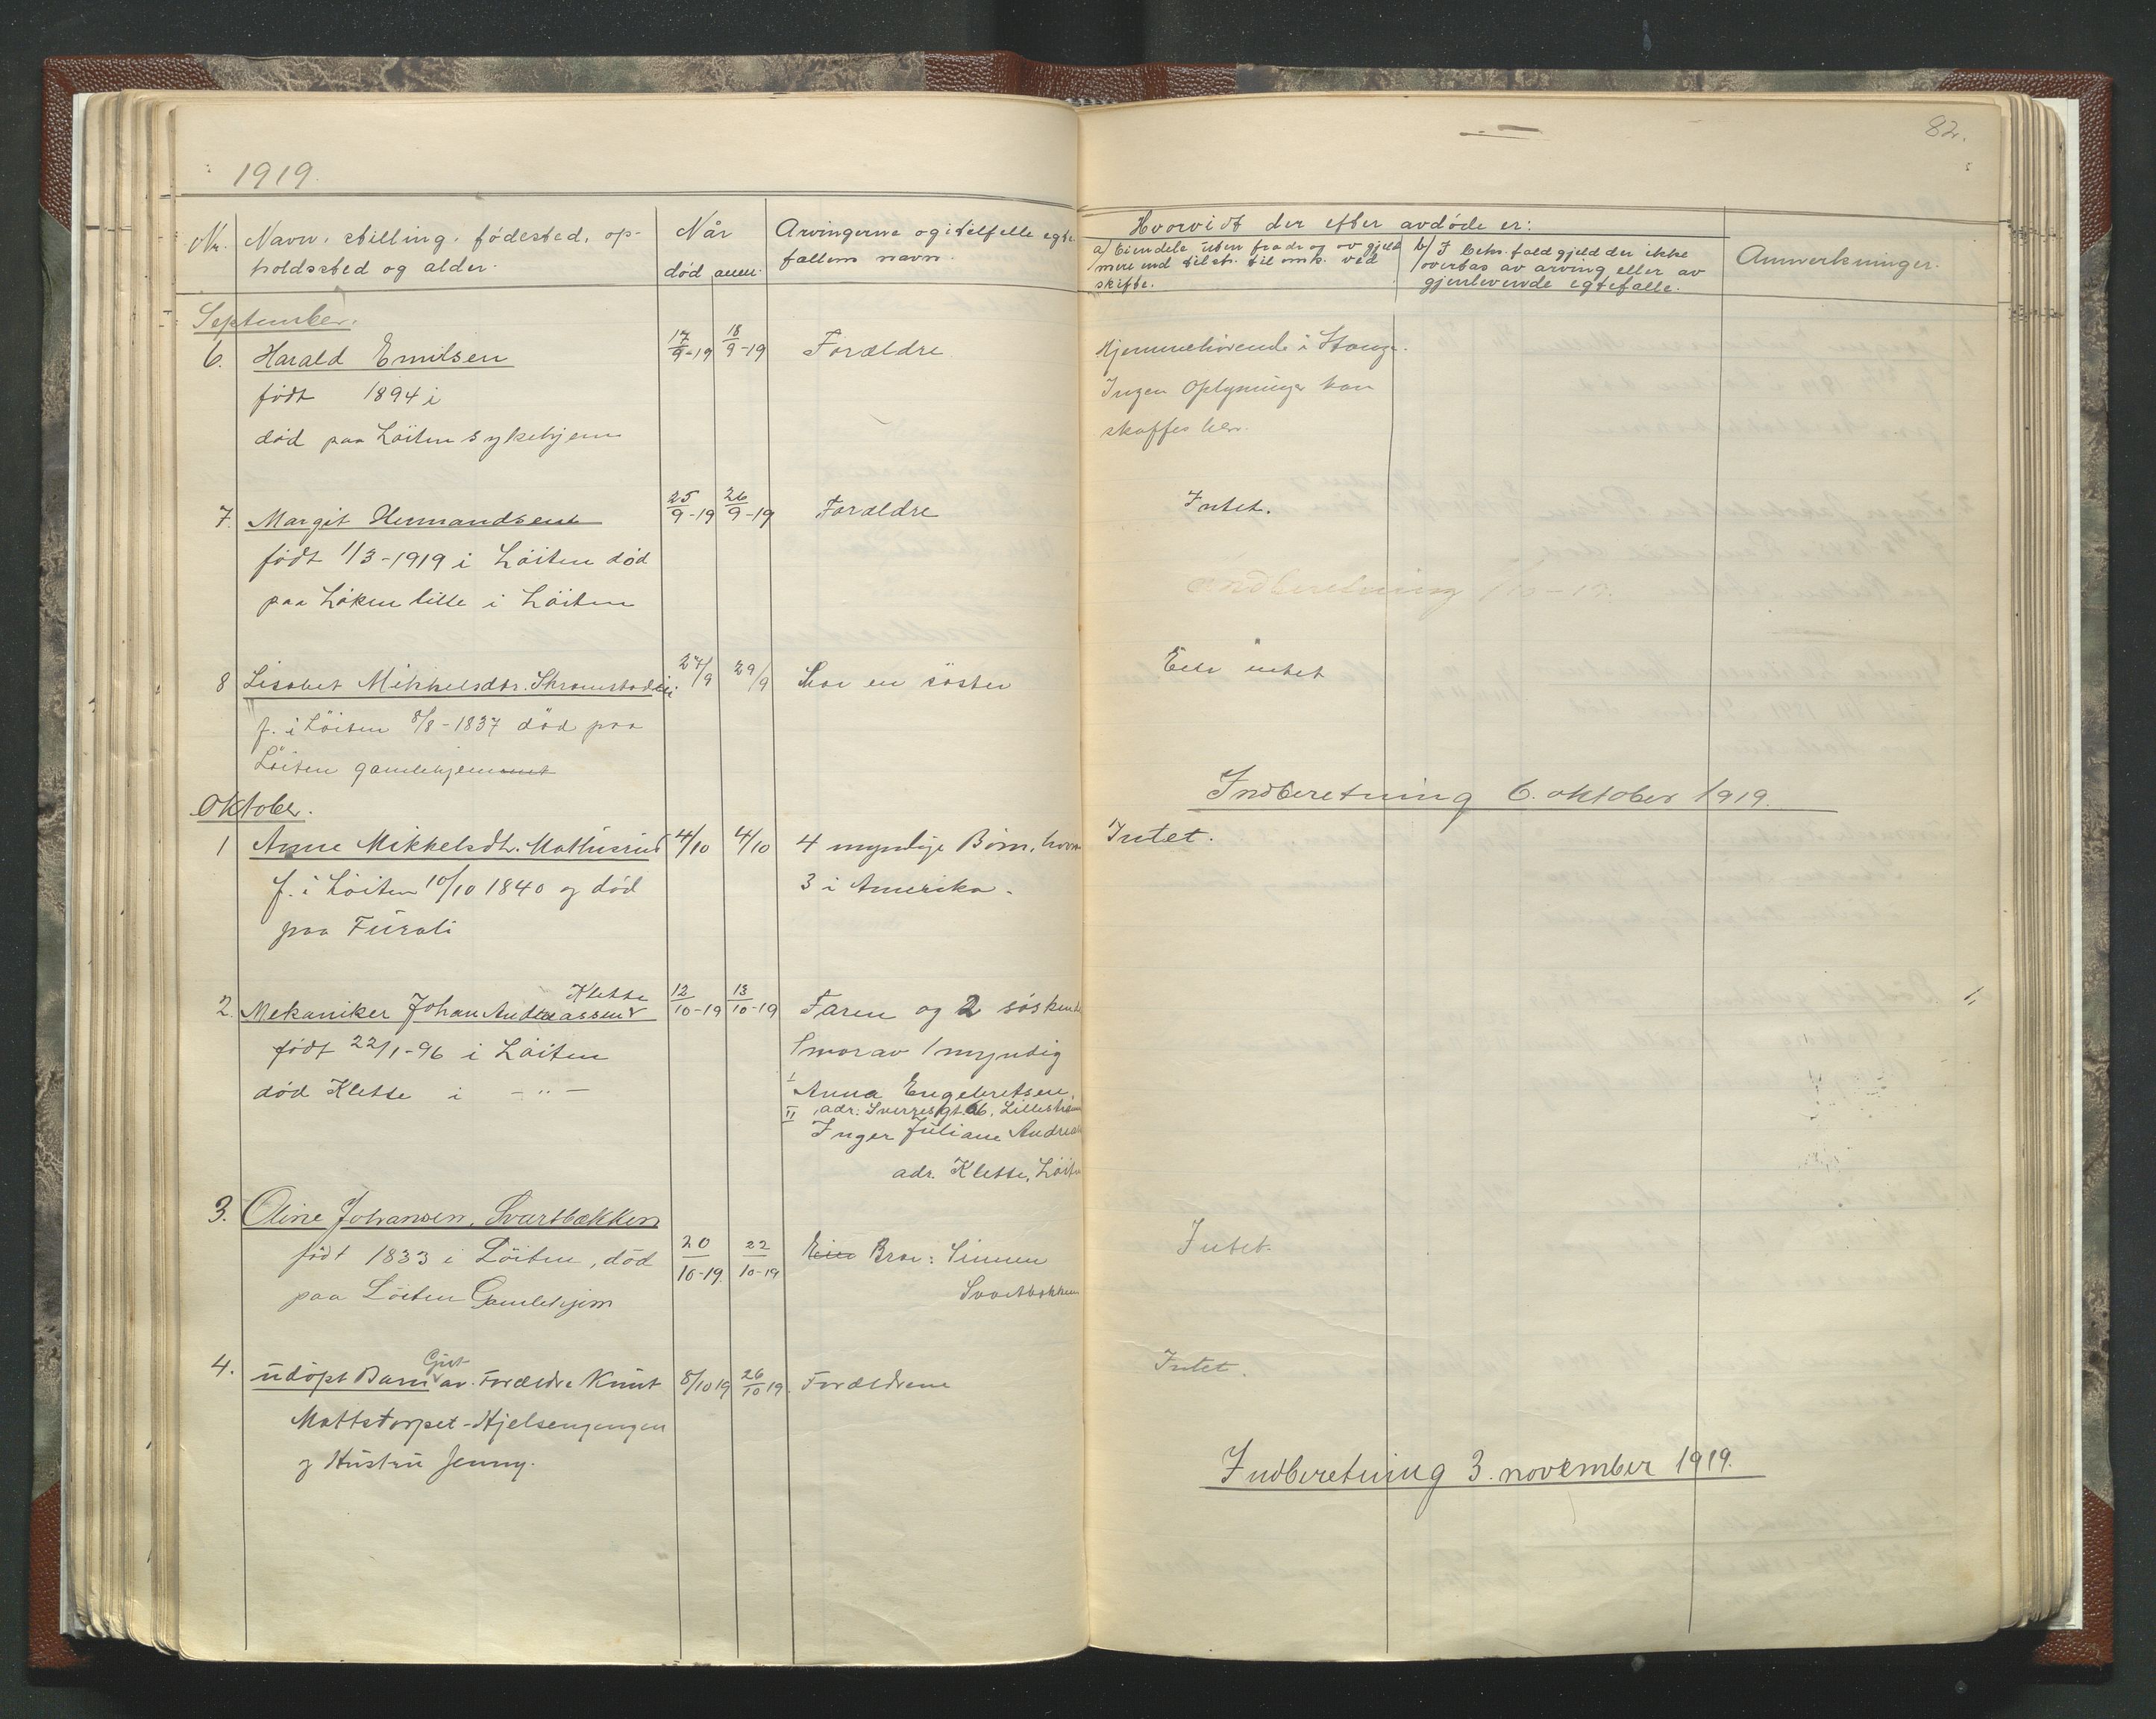 1919.
82.
Nr. Navn, stilling, fødested, op-
holdssted og alder.
Når
død anm.
Arvingerne og i tilfelle egte-
fellens navn.
Hvorvidt der efter avdøde er:
a/ Eiendele uten fradr. og av gjeld
mere end tilstr. til omk. ved
skifte.
b/ I beh. fald gjeld der ikke
overtas av arving eller av
gjenlevende egtefælle.
Anmerkninger.
September.
6. Harald Emilsen 17/9-19 18/9-19 Forældre Hjemmehørende i Stange.
født 1894 i Ingen Oplysninger kan
død paa Löiten sykehjem skaffes her.
7. Margit Hermandsen 25/9-19 26/9-19 Forældre Intet.
født 1/3-1919 i Löiten død
paa Løken lille i Löiten
Indberetning
8 Lisabet Mikkelsdtr. 27/9 29/9 Har en søster Eier intet
f. i Löiten 8/8-1837 död paa
Löiten gamlehjemmet
Indberetning 6. oktober 1919.
Oktober.
1 Anne Mikkelsdt. 4/10 4/10 4 myndige Børn, hvorav Intet.
f. i Löiten 10/10 1840 og död 3 i Amerika.
paa Furali
Klette
2. Mekaniker Johan Andreassen 12/10-19 13/10-19 Faren og 2 søskende
født 22/1-96 i Löiten hvorav 1 myndig
død Klette i - " - I Anna Engebretsen,
II adr: Sverresgt. 6, Lillestrøm
Inger Juliane Andreas
adr. Klette, Löiten
3. Oline Johansen, Svartbækken
født 1833 i Löiten, död 20/10-19. 22/10-19 Brøe: Simen Intet.
paa Löiten Gamlehjem Svartbækken
Gut
4. udøpt Barn av Forældre Knut 8/10 19 26/10 19. Forældrene Intet.
Mattstorpet-Hjelsengengen
og Hustru Jenny.
Indberetning 3. november 1919.